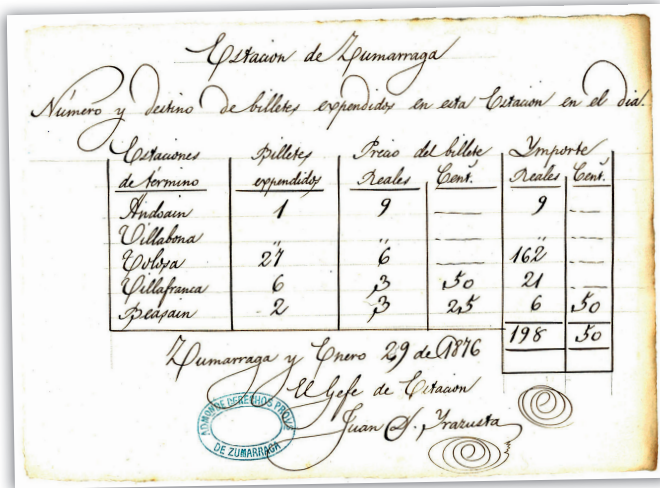 Estacion de Zumarraga
Número y destino de billetes expendidos en esta Estacion en el dia.
Estaciones Billetes Precio del billete Ymporte
de término expendidos Reales Cent.ˢ Reales Cent.ˢ
Andoain 1 9 — 9 —
Villabona „ „ — „ —
Tolosa 27 6 — 162 —
Villafranca 6 3 50 21 —
Beasain 2 3 25 6 50
198 50
Zumarraga y Enero 29 de 1876
El Gefe de Estacion
Juan S. Yrazusta
ADMON DE DERECHOS PROV
DE ZUMARRAGA